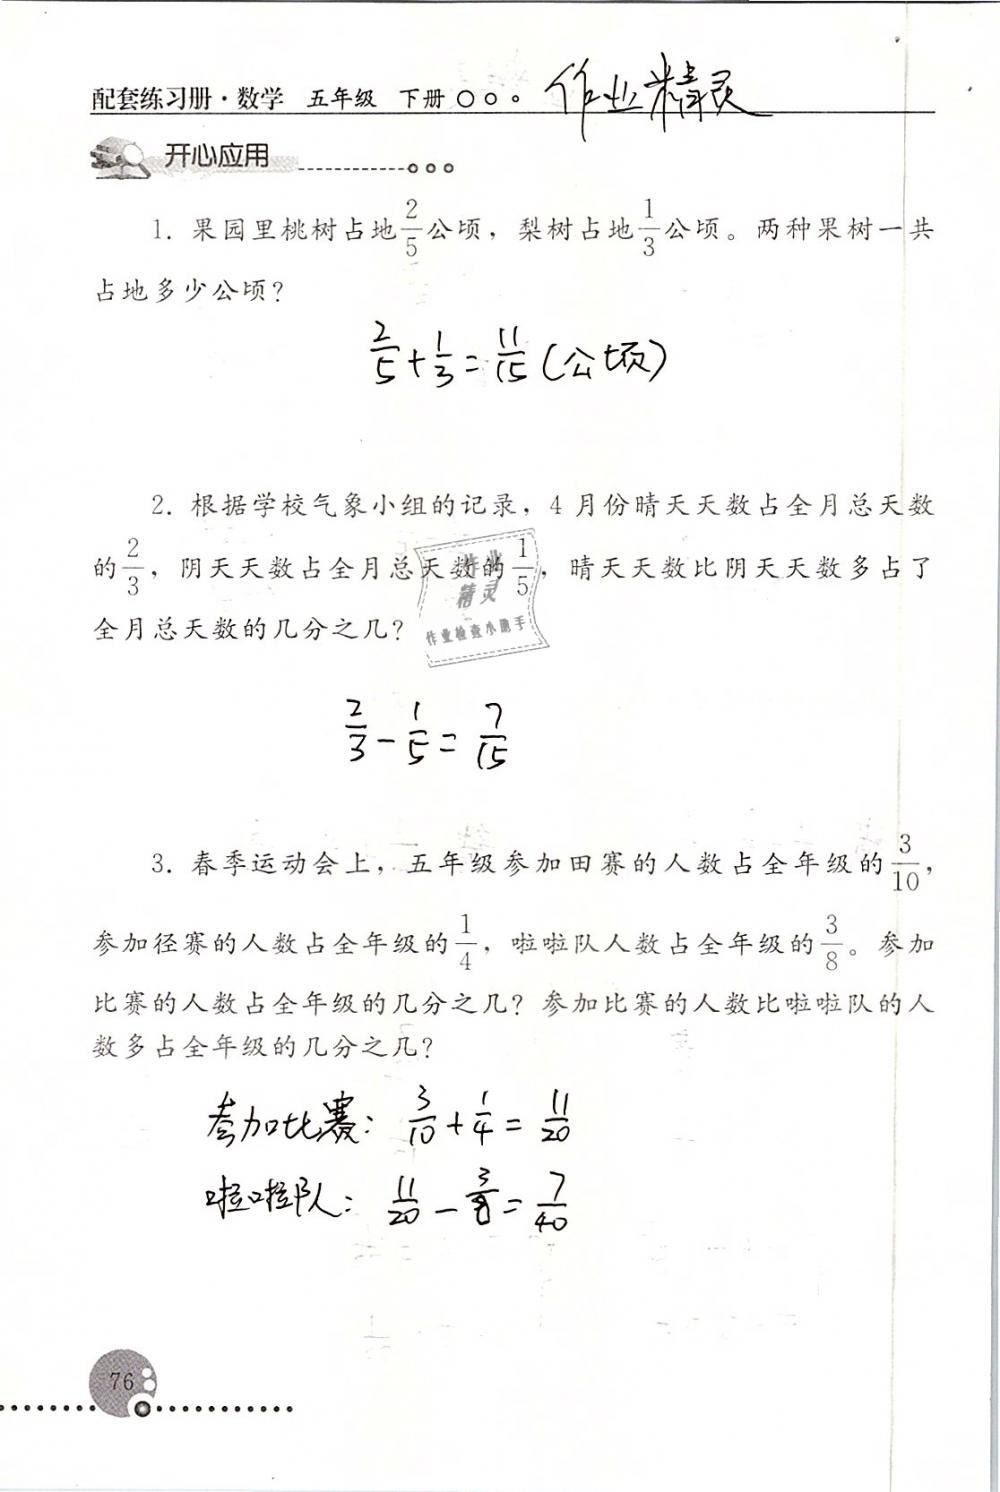 配套练习册·数学 五年级 下册 作业精灵
开心应用
1. 果园里桃树占地2/5公顷，梨树占地1/3公顷。两种果树一共
占地多少公顷？
2/5+1/3=11/15(公顷)
2. 根据学校气象小组的记录，4月份晴天天数占全月总天数
的2/3，阴天天数占全月总天数的1/5，晴天天数比阴天天数多占了
全月总天数的几分之几？
作业
精灵
作业检查小助手
2/3-1/5=7/15
3. 春季运动会上，五年级参加田赛的人数占全年级的3/10，
参加径赛的人数占全年级的1/4，啦啦队人数占全年级的3/8。参加
比赛的人数占全年级的几分之几？参加比赛的人数比啦啦队的人
数多占全年级的几分之几？
参加比赛：3/10+1/4=11/20
啦啦队：11/20-3/8=7/40
76